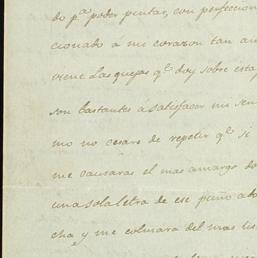 do p.ª poder pintar, con perfeccion
cionado á mi corazon tan am
viene Las quejas q.e doy sobre esta
son bastantes á satisfacer mi sen
mo no cesare de repetir q.e si
me causaras el mas amargo do
una sola letra de ese puño ado
cha, y me colmara del mas lis